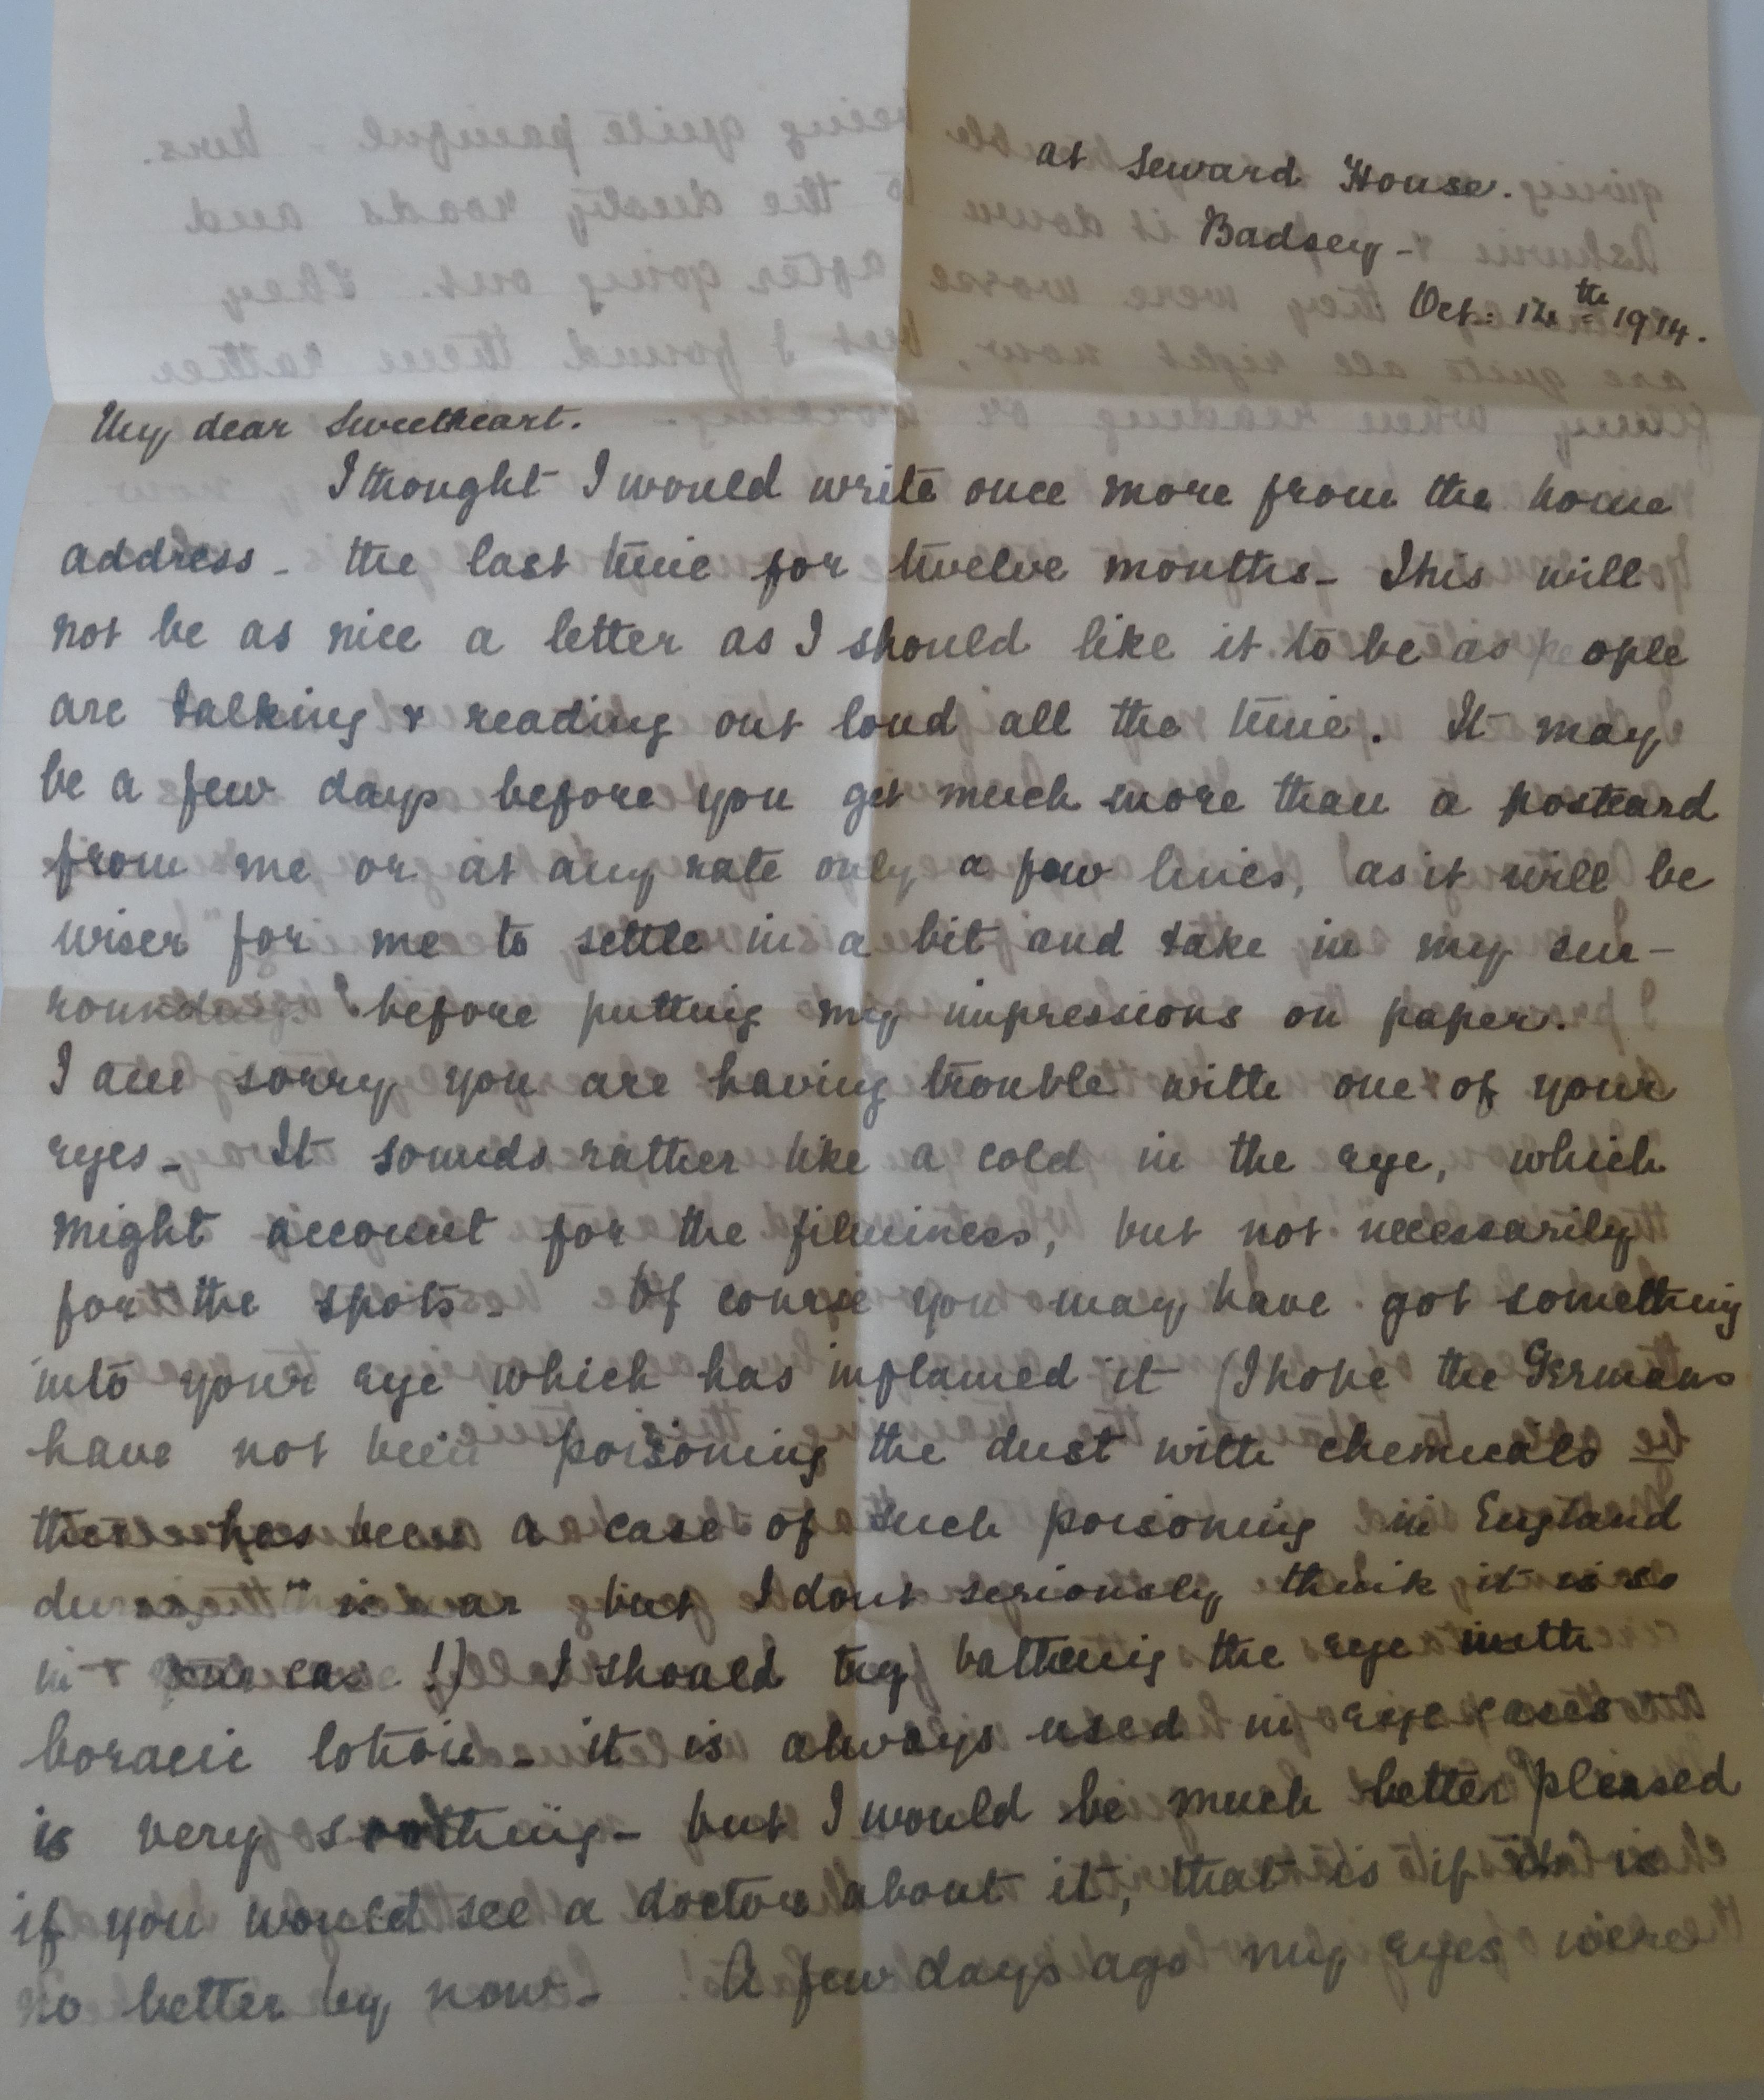 at Seward House.
Badsey -
Oct: 12th 1914.
My dear Sweetheart.
I thought I would write once more from the home
address - the last time for twelve months - This will
not be as nice a letter as I should like it to be as people
are talking & reading out loud all the time. It may
be a few days before you get much more than a postcard
from me or at any rate only a few lines, as it will be
wiser for me to settle in a bit and take in my sur-
roundings before putting my impressions on paper.
I am sorry you are having trouble with one of your
eyes - It sounds rather like a cold in the eye, which
might account for the filminess, but not necessarily
for the spots - Of course you may have got something
into your eye which has inflamed it (I hope the Germans
have not been poisoning the dust with chemicals -
there has been a case of such poisoning in England
during this war but I dont seriously think it is so
in your case !) I should try bathing the eye with
boracic lotion - it is always used in eye cases
is very soothing - but I would be much better pleased
if you would see a doctor about it, that is if it is
no better by now - A few days ago my eyes were